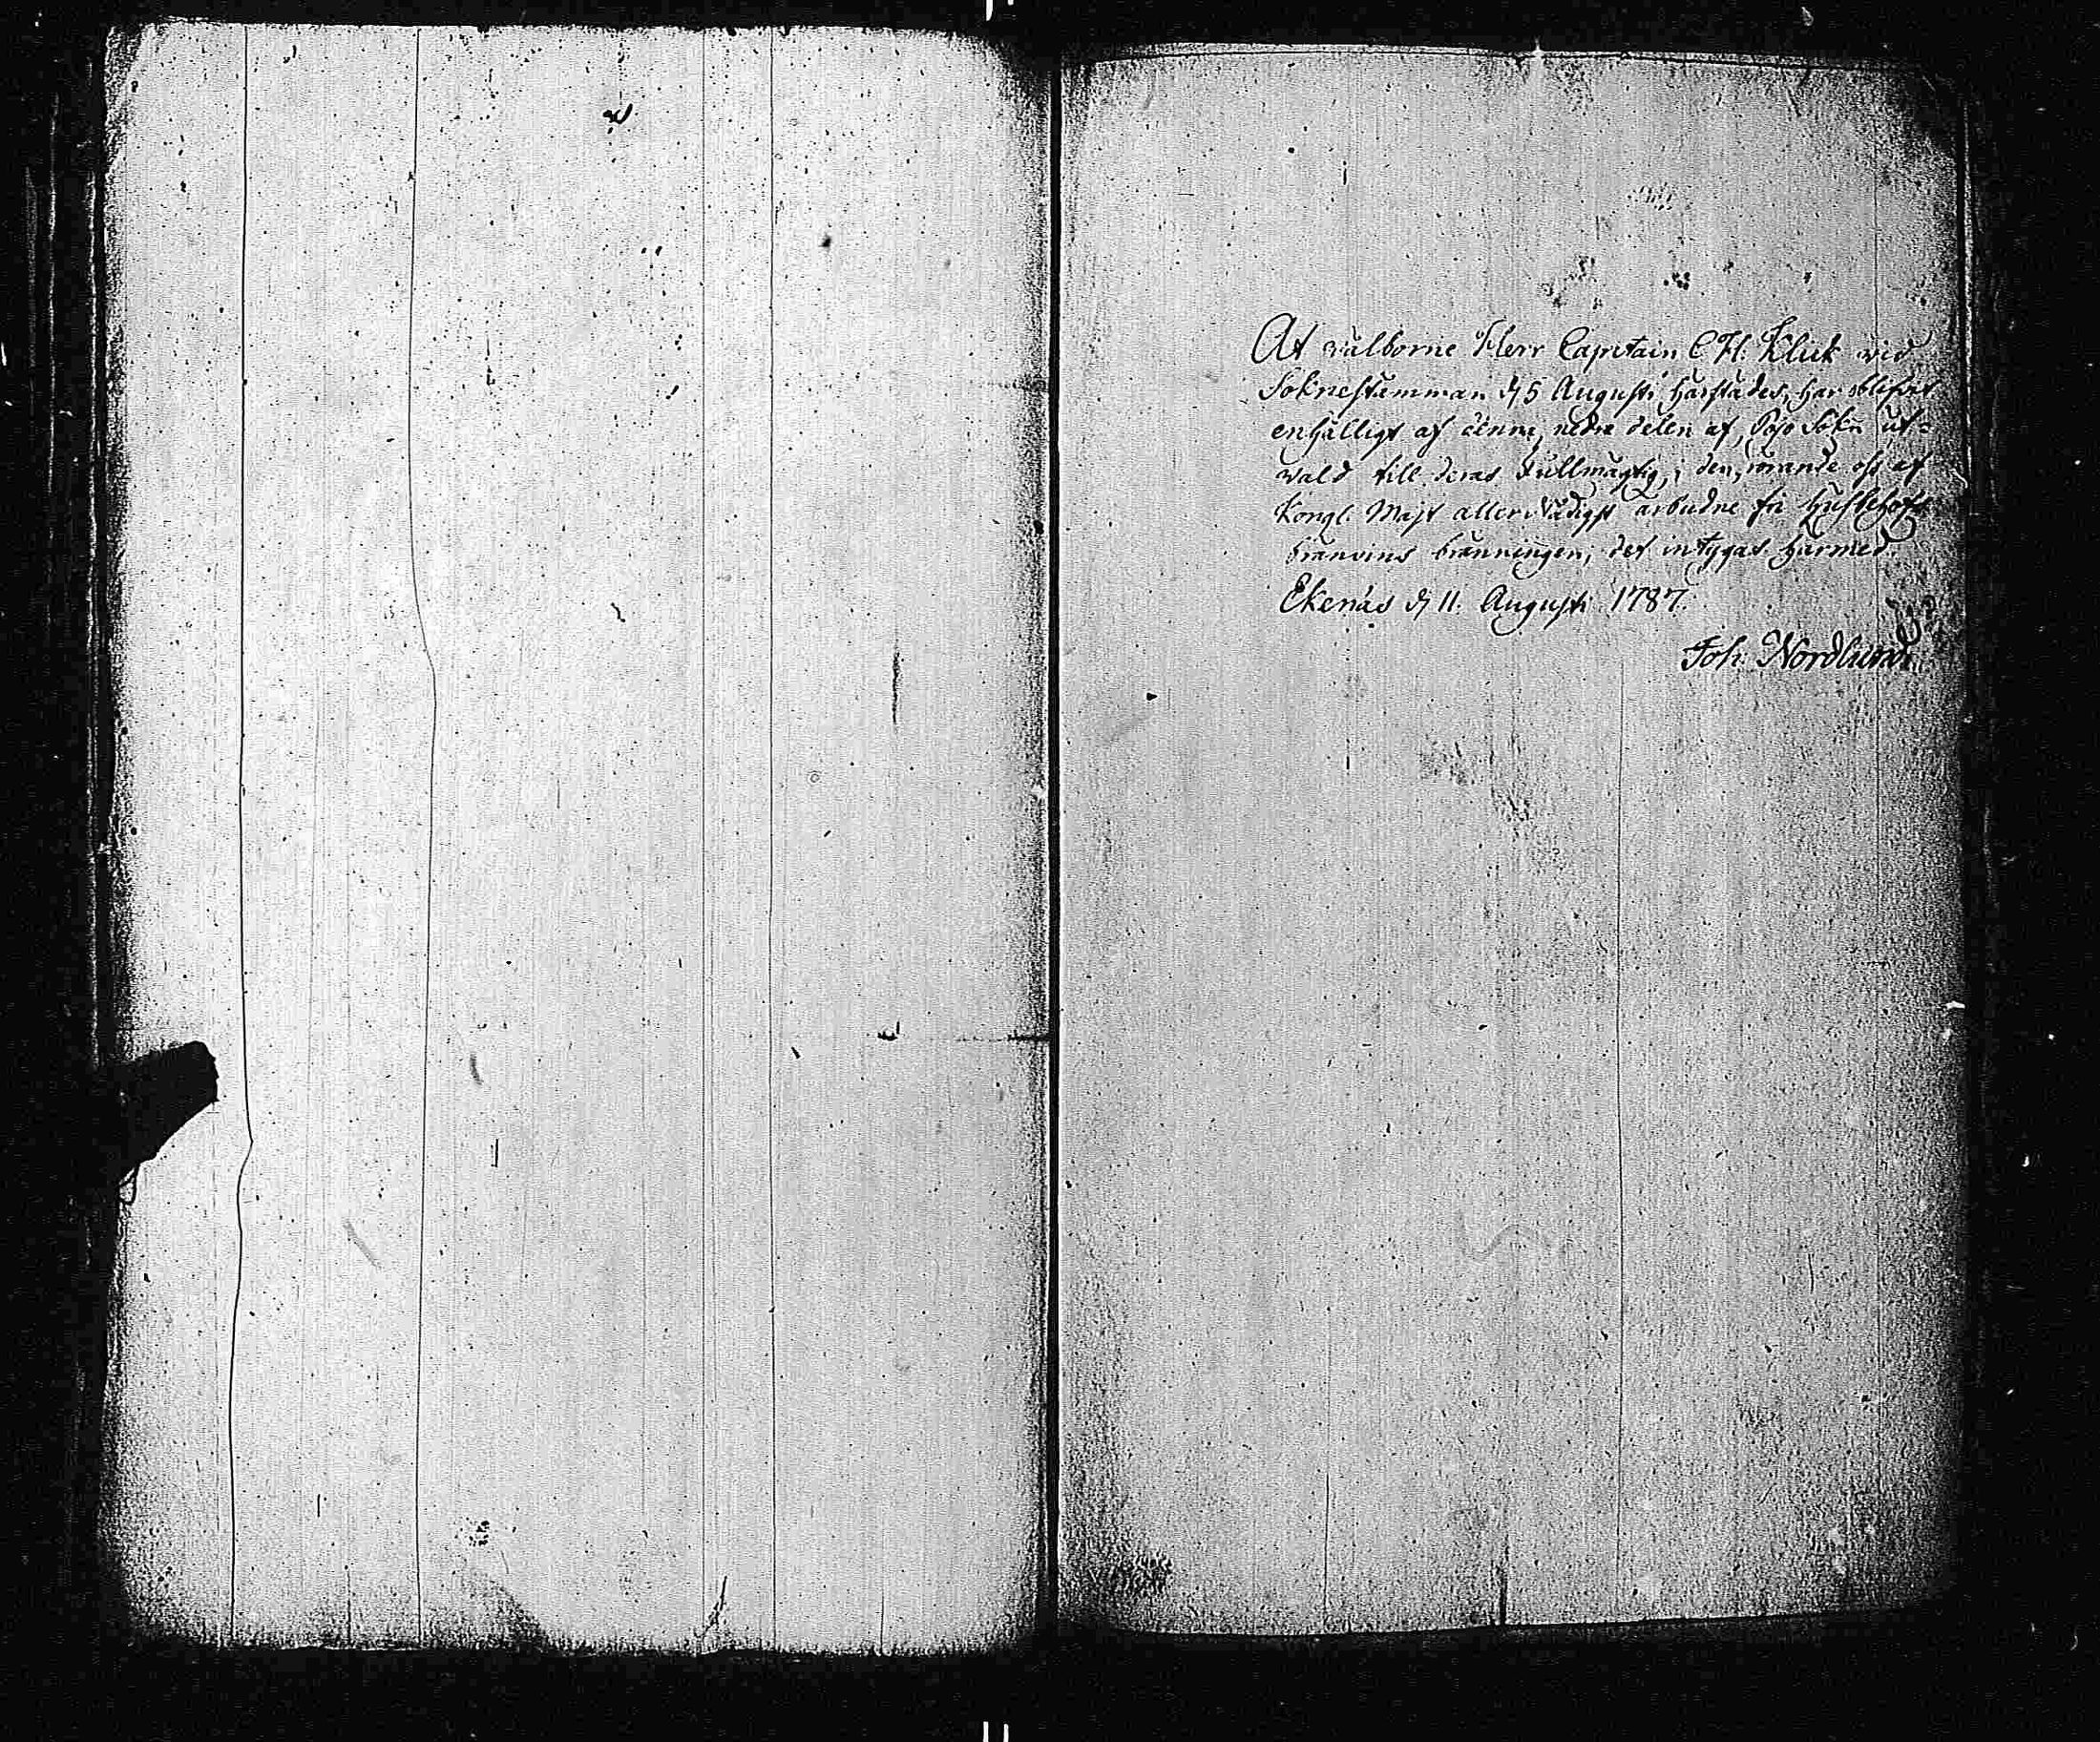 At wälborne Herr Capitain C H. Klick wid
Soknestämman d 5 Augusti härstädes, har blifvit
enhälligt af denna nedre delen af Pojo Sokn ut-
wald till deras Fullmägtig, i den, rörande oss af
Kongl. Majt allernådigst arbudne fri husbehofs
bränvins bränningen, det intygas härmed.
Ekenäs d 11. Augusti 1787.
Joh. Nordlund